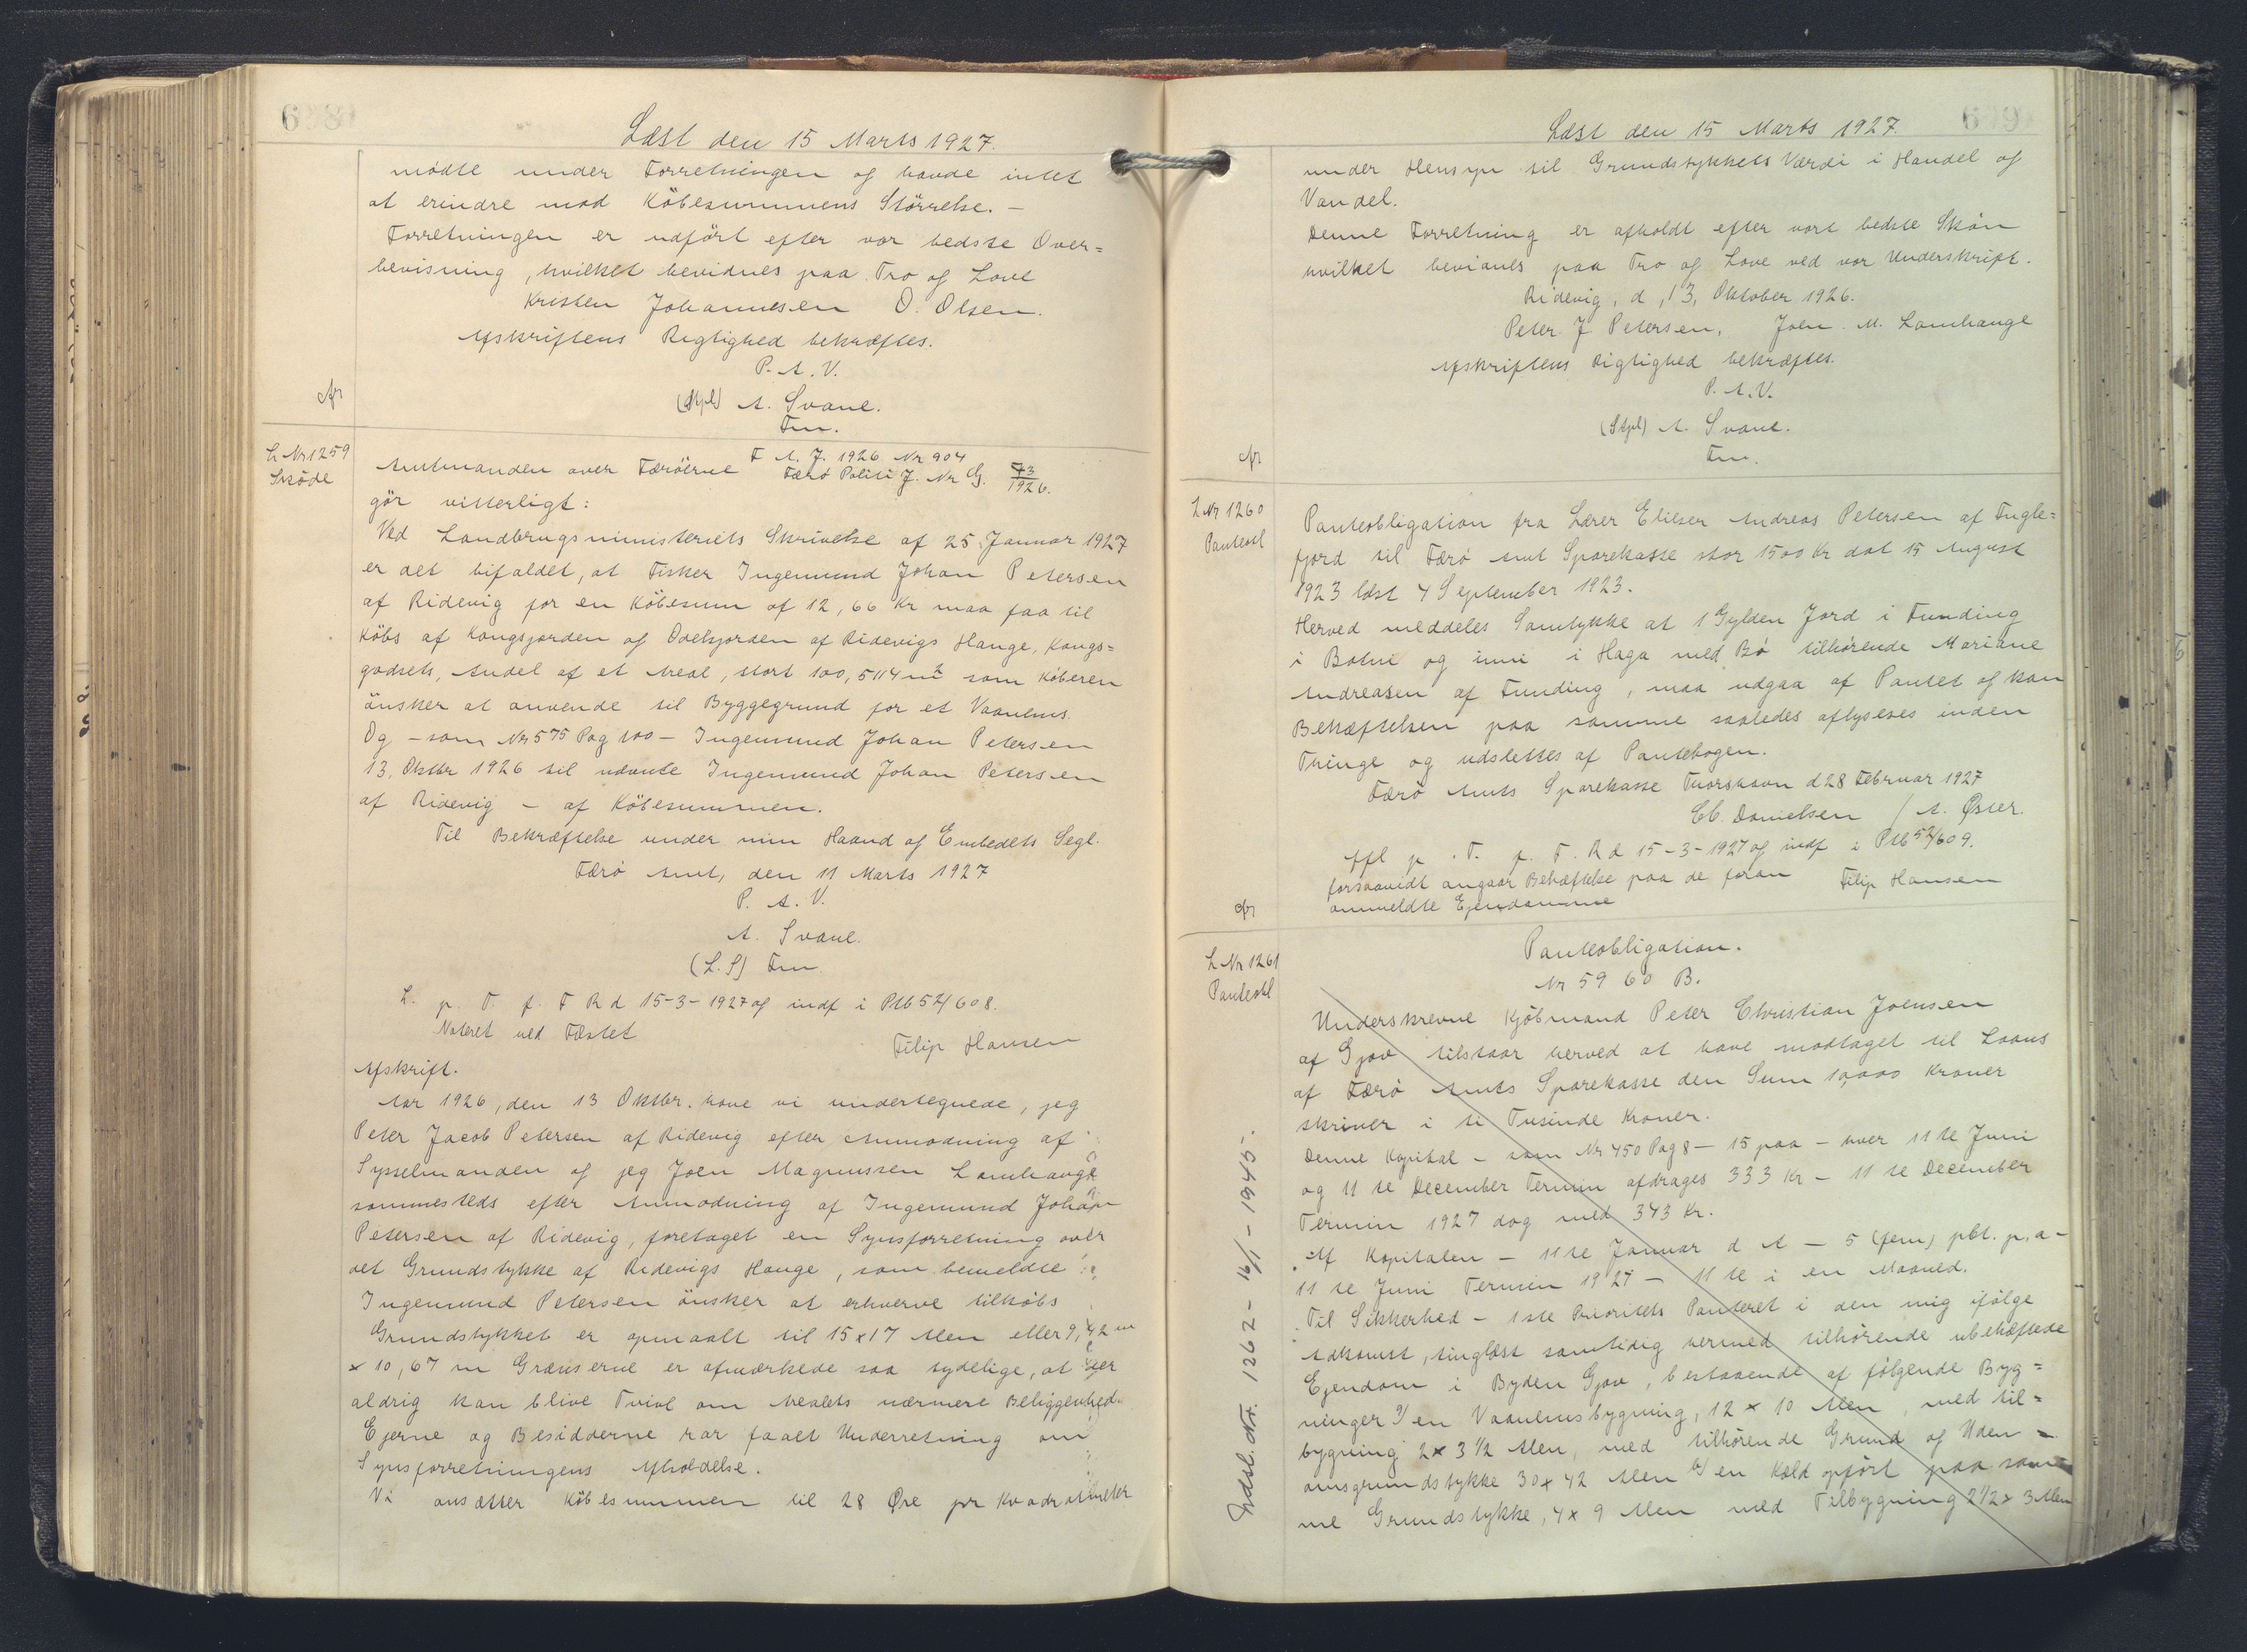 608
Læst den 15 Marts 1927.
mödte under Forretningen og havde intet
at erindre mod Köbesummens Större​lse. –
Forretningen er udfört efter vor bedste Over=
bevisning, hvilket bevidnes paa Tro og Love
Kristen Johannesen O. Olsen.
Afskriftens Rigtighed bekræftes.
P. A. V.
(Stpl) A. Svane.
Fm.
L Nr 1259
Skøde
F A. J. 1926 Nr 904
Amtmanden over Færöerne Færø Politi J. Nr G. 73/1926.
gör vitterligt:
Ved Landbrugsministeriets Skrivelse af 25 Januar 1927
er det bifaldet, at Fisker Ingemund Johan Petersen
af Ridevig for en Köbesum af 12,66 Kr maa faa til
Köbs af Kongsjorden og Odelsjorden af Ridevigs Hauge, Kongs=
godsets, Andel af et Areal, stort 100,5114 m2 som Köberen
önsker at anvende til Byggegrund for et Vaanhus.
Og – som Nr 575 Pag 100 – Ingemund Johan Petersen
13. Oktbr 1926 til nævnte Ingemund Johan Petersen
af Ridevig – af Köbesummen.
Til Bekræftelse under min Haand og Embedets Segl.
Færö Amt, den 11 Marts 1927
P. A. V.
A. Svane.
(L.S) Fm
L. p. T. f. F R d 15-3-1927 og indf i Ptb 52/608.
Noteret ved Fæstet
Filip Hansen
Afskrift.
Aar 1926, den 13 Oktbr. have vi undertegnede, jeg
Peter Jacob Petersen af Ridevig efter Anmodning af
Sysselmanden og jeg Joen Magnussen Lamhauge
sammesteds efter Anmodning af Ingemund Johan
Petersen af Ridevig, foretaget en Synsforretning over
det Grundstykke af Ridevigs Hauge, som bemeldte
Ingemund Petersen önsker at erhverve tilköbs
Grundstykket er opmaalt til 15 x 17 Alen eller 9,42 m
x 10,67 m Grænserne er afmærkede saa tydelige, at der
aldrig kan blive Tvivl om Arealets nærmere Beliggenhed.
Ejerne og Besidderne har faaet Underretning om
Synsforretningens Afholdelse.
Vi ansætter Köbesummen til 28 Øre pr Kvadratmeter
609
Læst den 15 Marts 1927.
under Hensyn til Grundstykkets Værdi i Handel og
Vandel.
Denne Forretning er afholdt efter vort bedste Skön
hvilket bevidnes paa Tro og Love ved vor Underskrift.
Ridevig, d, 13, Oktober 1926.
Peter J Petersen, Joen M. Lamhauge
Afskriftens Rigtighed bekræftes.
P. A. V.
(Stpl) A. Svane.
Fm.
L Nr 1260
Panteobl
Panteobligation fra Lærer Elieser Andreas Petersen af Fugle=
fjord til Færö Amt Sparekasse stor 1500 Kr dat 15 August
1923 læst 4 September 1923.
Herved meddeles Samtykke at 1 Gylden Jord i Funding
i Botni og inni i Haga med Bö tilhörende Mariane
Andreasen af Funding, maa udgaa af Pantet og kan
Behæftelsen paa samme saaledes aflyseses inden
Thinge og udslettes af Pantebogen.
Færö Amts Sparekasse Thorshavn d 28 Februar 1927
Chr. Danielsen / A. Øster.
Afl p. T. f. F. R d 15-3-1927 og indf i Ptb 52/609.
forsaavidt angaar Behæftelse paa de foran
Filip Hansen
anmeldte Ejendomme
L Nr 1261
Panteobl
Panteobligation.
Nr 59 60 B.
Underskrevne Kjöbmand Peter Christian Joensen
af Gjov tilstaar herved at have modtaget til Laans
af Færö Amts Sparekasse den Sum 10,000 Kroner
skriver i ti Tusinde Kroner.
Denne Kapital – som Nr 450 Pag 8 – 15 paa – hver 11te Juni
og 11te December Termin afdrages 333 Kr – 11te December
Termin 1927 dog med 343 Kr.
Af Kapitalen – 11te Januar d A – 5 (fem) pCt. p, a –
11te Juni Termin 1927 – 11te i en Maaned.
Til Sikkerhed – 1ste Prioritets Panteret i den mig ifölge
Adkomst, tinglæst samtidig hermed tilhörende ubehæftede
Ejendom i Byden Gjov, bestaaende af fölgende Byg=
ninger a/ en Vaanhusbygning, 12 x 10 Alen, med til=
bygning 2 x 3 1/2 Alen, med tilhörende Grund og Uden=
omsgrundstykke 30 x 42 Alen b/ en Kæld opfört paa sam=
me Grundstykke, 4 x 9 Alen med Tilbygning 2 1/2 x 3 Alen
Indsl. Nr. 1262 – 16/1 – 1945.